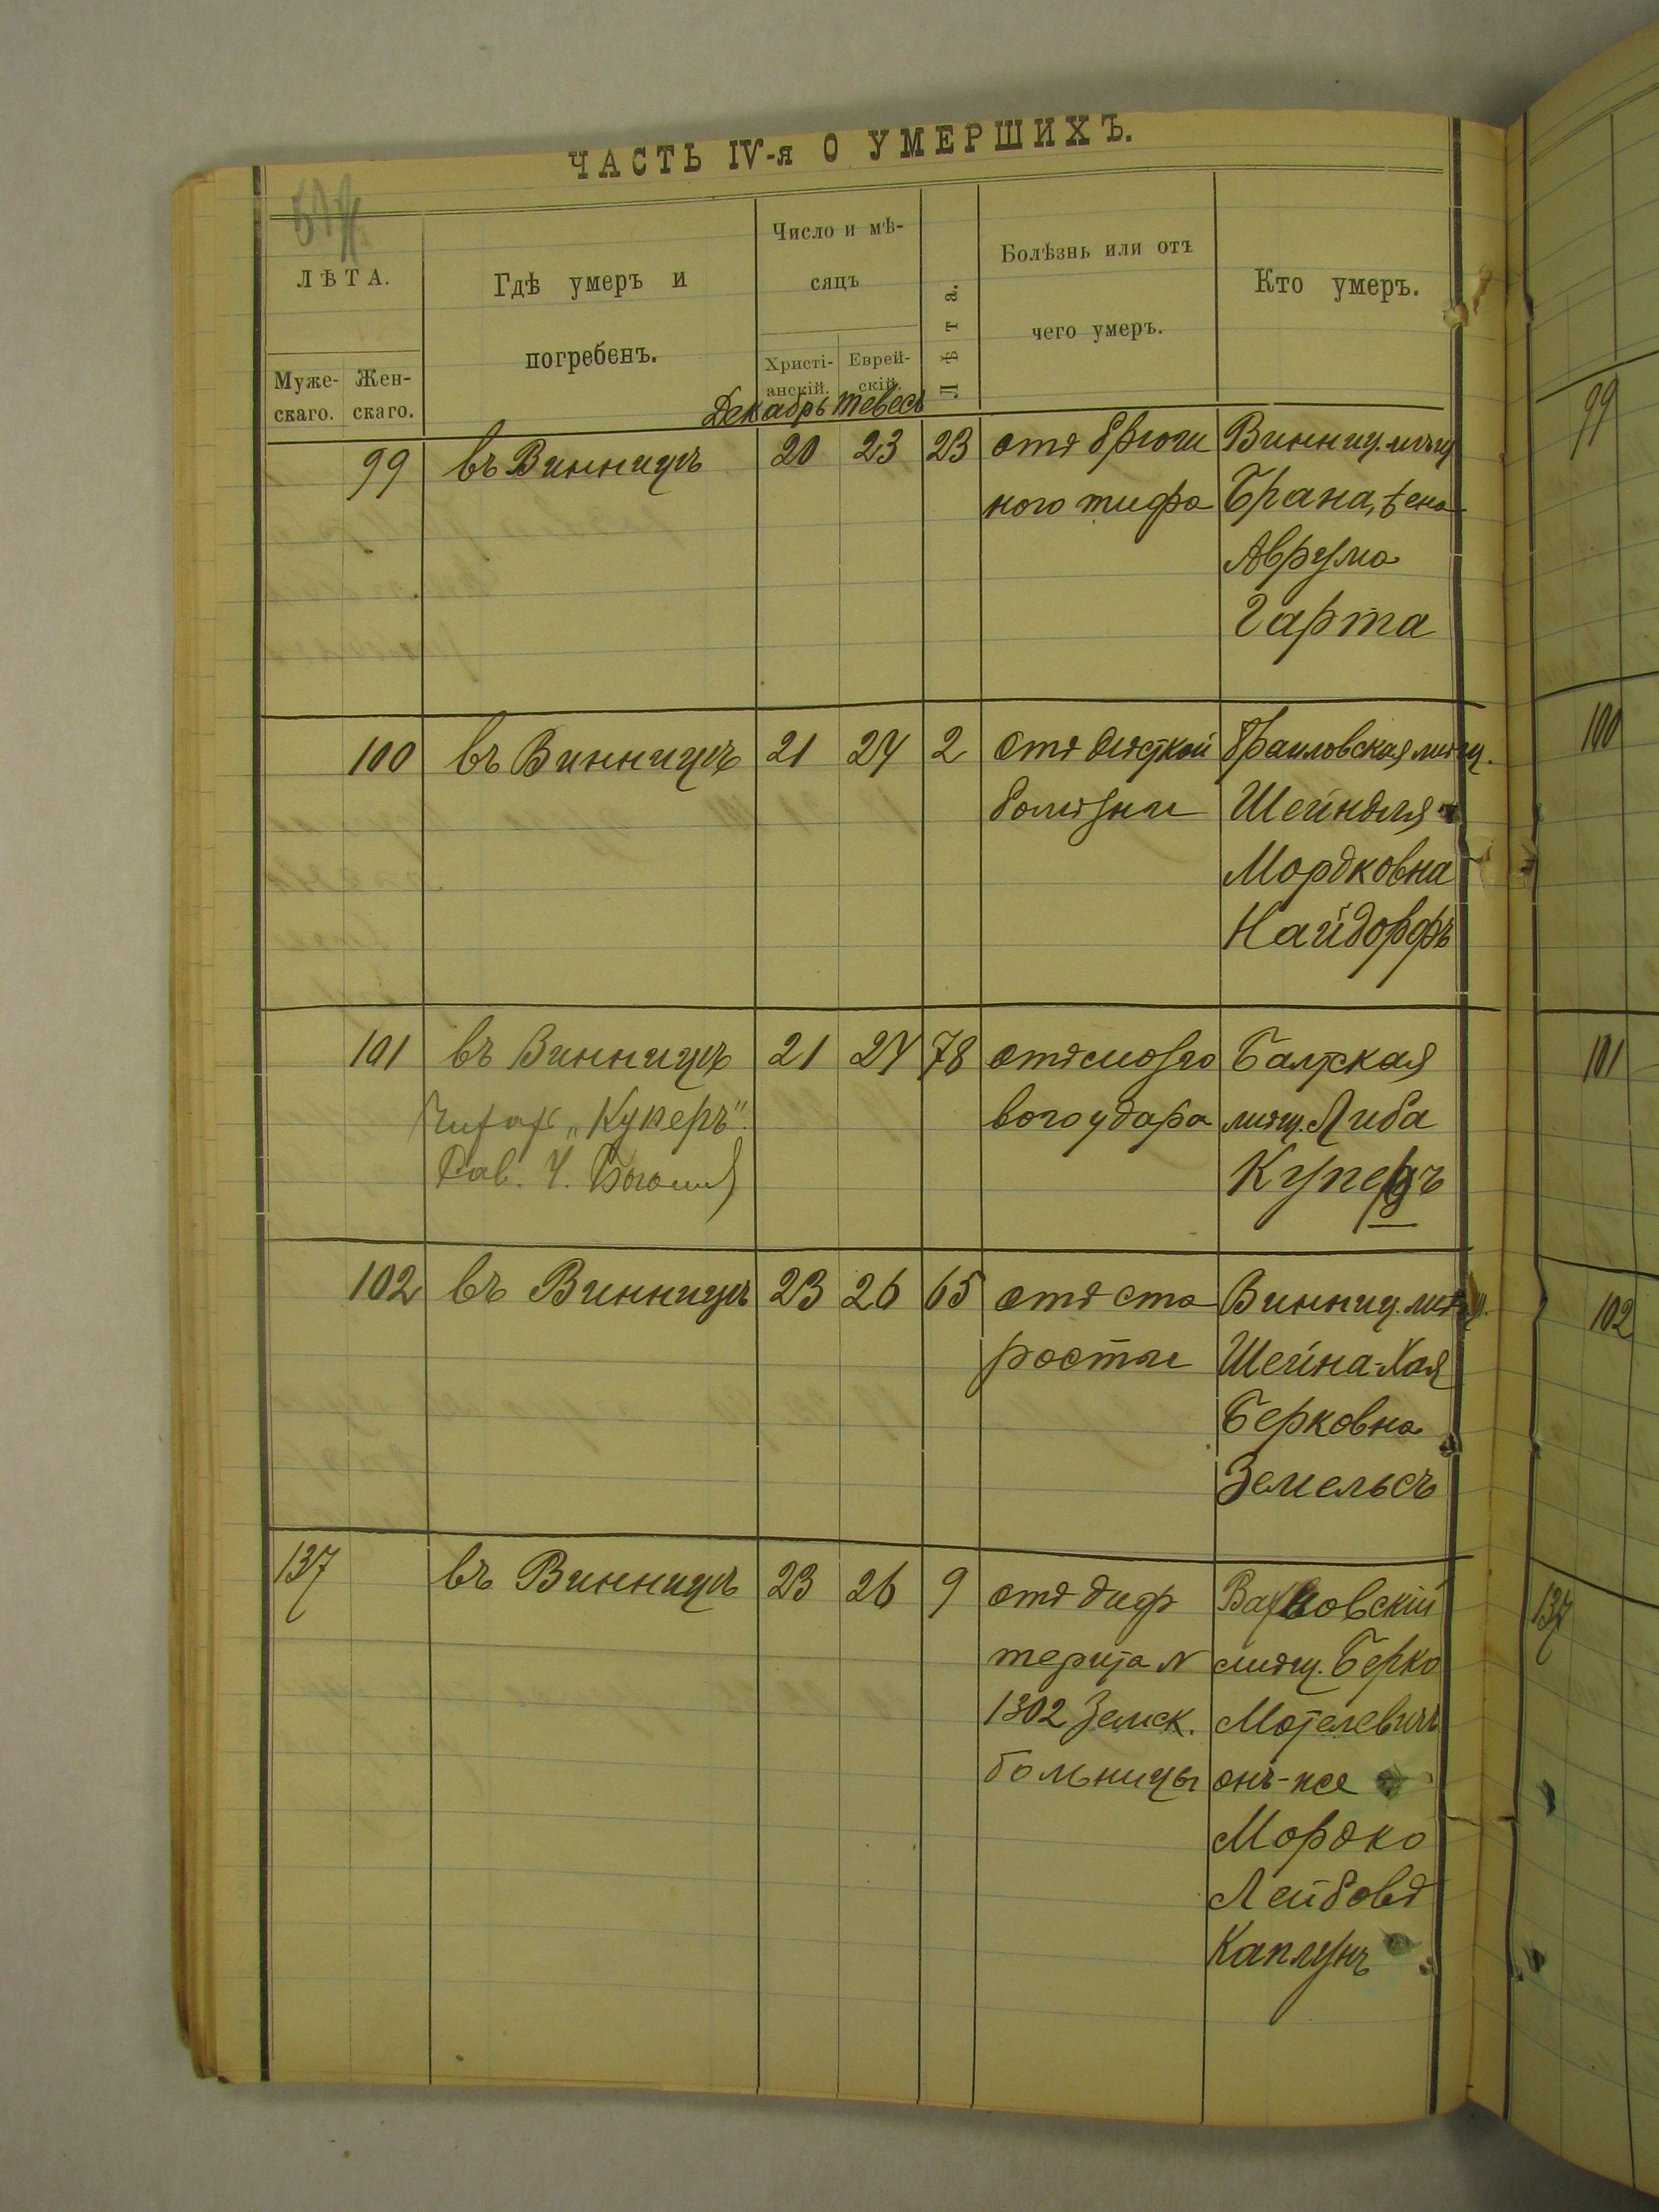 ЧАСТЬ IV-я О УМЕРШИХЪ.
ЛѢТА.
Муже-
скаго.
Жен-
скаго.
Гдѣ умеръ и
погребенъ.
Число и мѣ-
сяцъ
Христі-
анскій.
Еврей-
скій.
Лѣта.
Болѣзнь или отъ
чего умеръ.
Кто умеръ.
Декабрь Тевесъ
99 въ Винницѣ 20 23 23 отъ брюш Винниц. мѣщ
ного тифа Брана, жена
Аврума
Гарта
100 въ Винницѣ 21 24 2 отъ дѣтской Браиловская мѣщ.
болѣзни Шейндля
Мордковна
Найдорфъ
101 въ Винницѣ 21 24 78 отъ мозго Балтская
„Куперъ". вого удара мѣщ. Либа
Рав. Куперъ
102 въ Винницѣ 23 26 65 отъ ста Винниц. мѣщ.
рости Шейна-Хая
Берковна
Земельсъ
137 въ Винницѣ 23 26 9 отъ диф
терита N мѣщ. Берко
1302 Земск. Мотелевичъ
больницы онъ-же
Мордко
Лейбовъ
Каплунъ
99
100
101
102
137